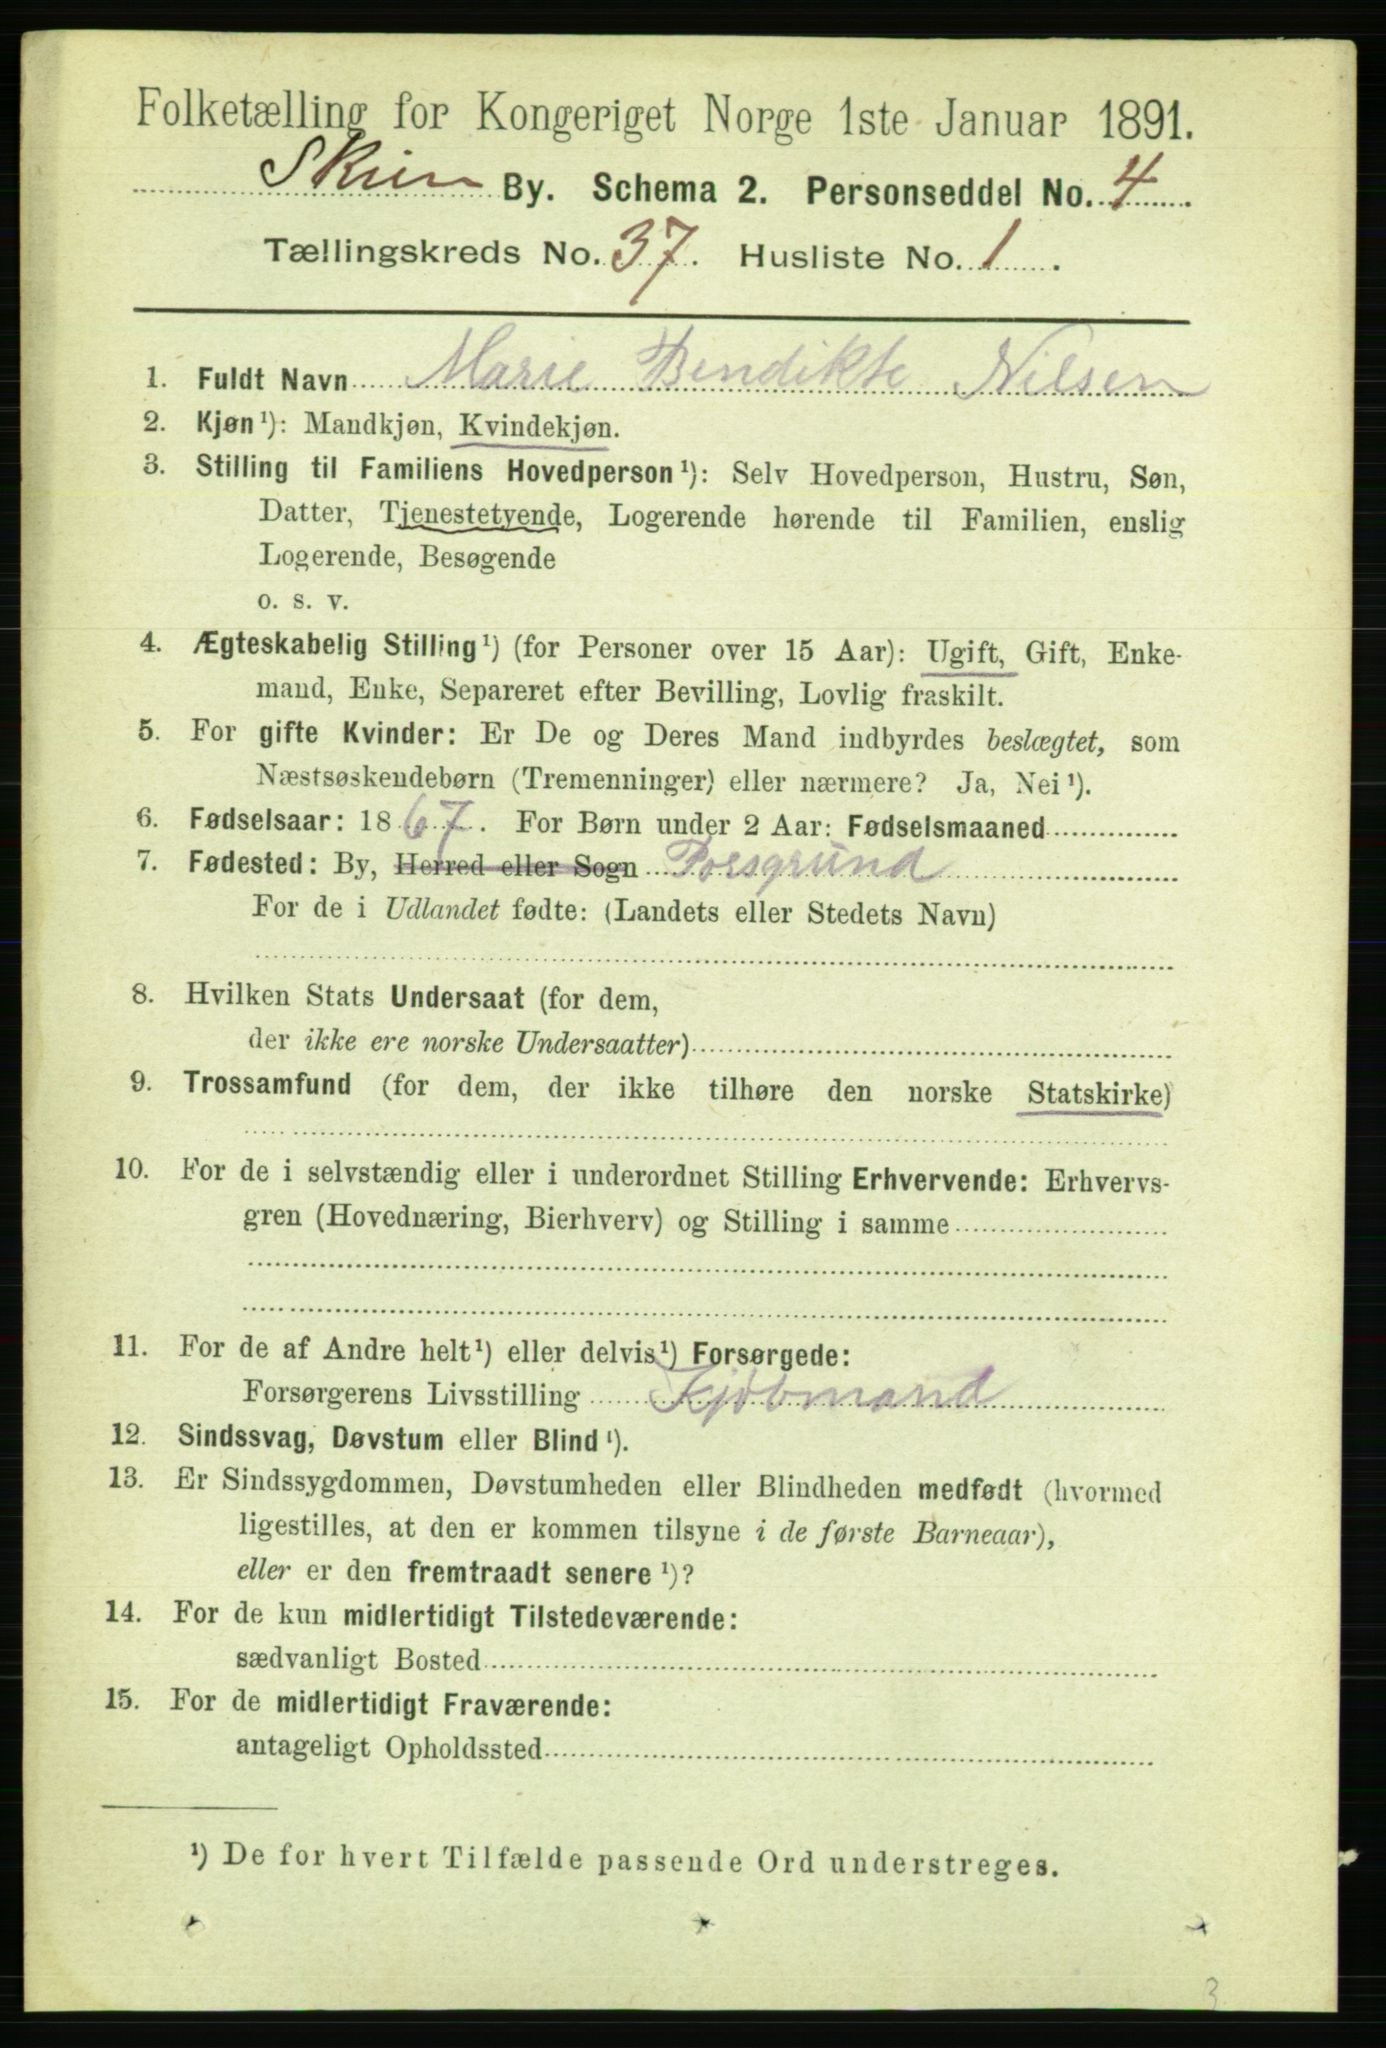 Folketælling for Kongeriget Norge 1ste Januar 1891.
Skien By. Schema 2. Personseddel No. 4.
Tællingskreds No. 37. Husliste No. 1.
1. Fuldt Navn Marie Bendikte Nilsen
2. Kjøn ¹): Mandkjøn, Kvindekjøn.
3. Stilling til Familiens Hovedperson ¹): Selv Hovedperson, Hustru, Søn,
Datter, Tjenestetyende, Logerende hørende til Familien, enslig
Logerende, Besøgende
o. s. v.
4. Ægteskabelig Stilling ¹) (for Personer over 15 Aar): Ugift, Gift, Enke-
mand, Enke, Separeret efter Bevilling, Lovlig fraskilt.
5. For gifte Kvinder: Er De og Deres Mand indbyrdes beslægtet, som
Næstsøskendebørn (Tremenninger) eller nærmere? Ja, Nei ¹).
6. Fødselsaar: 1867. For Børn under 2 Aar: Fødselsmaaned
7. Fødested: By, Herred eller Sogn Porsgrund
For de i Udlandet fødte: (Landets eller Stedets Navn)
8. Hvilken Stats Undersaat (for dem,
der ikke ere norske Undersaatter)
9. Trossamfund (for dem, der ikke tilhøre den norske Statskirke)
10. For de i selvstændig eller i underordnet Stilling Erhvervende: Erhvervs-
gren (Hovednæring, Bierhverv) og Stilling i samme
11. For de af Andre helt ¹) eller delvis ¹) Forsørgede:
Forsørgerens Livsstilling Kjøbmand
12. Sindssvag, Døvstum eller Blind ¹).
13. Er Sindssygdommen, Døvstumheden eller Blindheden medfødt (hvormed
ligestilles, at den er kommen tilsyne i de første Barneaar),
eller er den fremtraadt senere ¹)?
14. For de kun midlertidigt Tilstedeværende:
sædvanligt Bosted
15. For de midlertidigt Fraværende:
antageligt Opholdssted
¹) De for hvert Tilfælde passende Ord understreges.
3